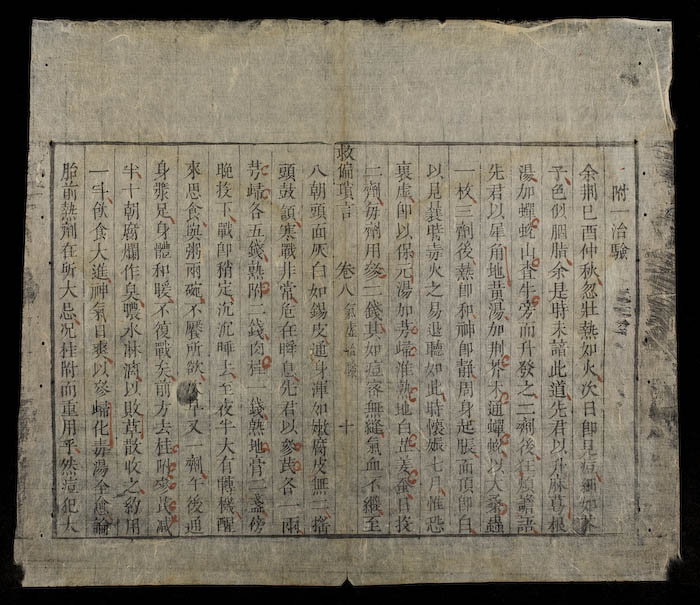 附治驗
余荆己酉仲秋忽壯熱如火次日即見痘細如芥
子色似胭脂余是時未諳此道先君以升麻葛根
湯加蟬蛻山查牛旁而升發之二劑後狂煩譫語
先君以犀角地黃湯加荆芥木通蟬蛻以大桑蟲
一枚三劑後熱即和神即靜周身起脹面頂即白
以見囊時毒火之易退聽如此時懷娠七月惟恐
裏虛即以保元湯加芎歸准熟地白芷
二劑每劑用參二錢其如痘密無縫氣血不繼至
救偏瑣言 卷八 十
八朝頭面灰白如錫皮通身渾如嫩腐皮無二指
頭鼓頷寒戰非常危在瞬息先君以參芪各一兩
芎歸各五錢熟附二錢肉桂一錢熟地膏二盞傍
晚投下戰即稍定沉沉睡去至夜半大有轉機醒
來思食與粥兩碗不厭所欲次早又一劑午後通
身漿足身體和暖不復戰矣前方去桂附參芪减
半十朝腐爛作臭膿水淋漓以敗草散收之約用
一斗飲食大進神氣日爽以參歸化毒湯全愈論
胎前熱劑在所大忌况桂附而重用乎然痘犯大